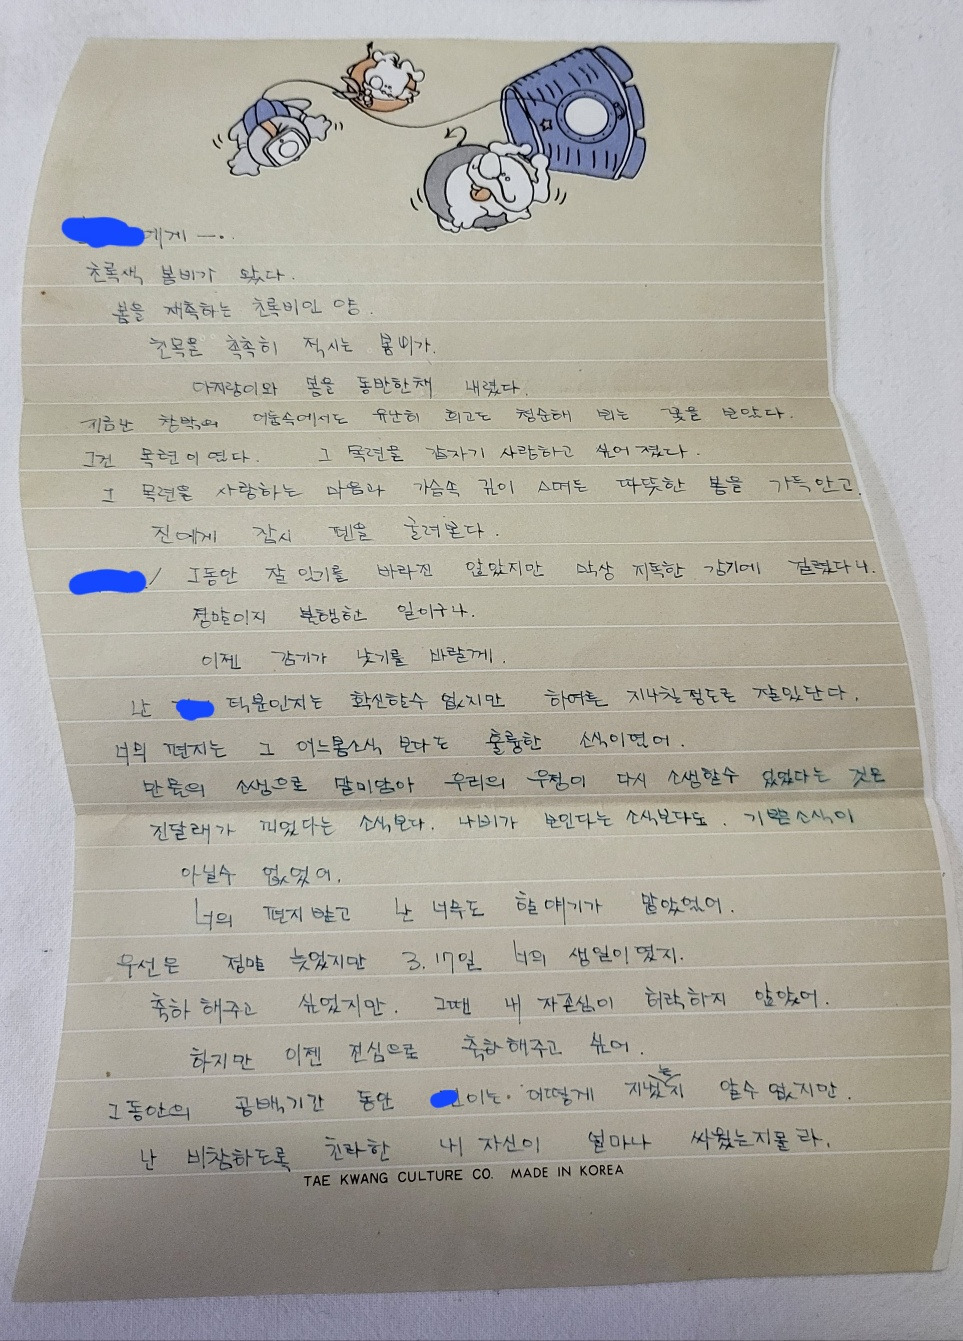 에게 —.
초록색 봄비가 왔다.
봄을 재촉하는 초록비인 양.
초목을 촉촉히 적시는 봄비가.
아지랑이와 봄을 동반한채 내렸다.
지금난 창밖의 어둠속에서도 유난히 희고도 청순해 뵈는 꽃을 보았다.
그건 목련이였다. 그 목련을 갑자기 사랑하고 싶어 졌다.
그 목련을 사랑하는 마음과 가슴속 깊이 스며든 따뜻한 봄을 가득안고.
진에게 잠시 펜을 굴려본다.
/ 그동안 잘 있기를 바라진 않았지만 막상 지독한 감기에 걸렸다니.
정말이지 불행한 일이구나.
이젠 감기가 낫기를 바랄께.
난 덕분인지는 확신할수 없지만 하여튼 지나칠정도로 잘있단다.
너의 편지는 그 어느봄소식 보다도 훌륭한 소식이였어.
만물의 소생으로 말미암아 우리의 우정이 다시 소생할수 있었다는 것은
진달래가 피었다는 소식보다. 나비가 보인다는 소식보다도. 기쁜소식이
아닐수 없었어.
너의 편지 받고 난 너무도 할 얘기가 많았었어.
우선은 정말 늦었지만 3. 17일 너의 생일이였지.
축하 해주고 싶었지만. 그땐 내 자존심이 허락하지 않았어.
하지만 이젠 진심으로 축하해주고 싶어.
그동안의 공백기간 동안 이는. 어떻게 지냈는지 알수 없지만.
난 비참하도록 초라한 내 자신이 얼마나 싸웠는지몰라.
TAE KWANG CULTURE CO. MADE IN KOREA